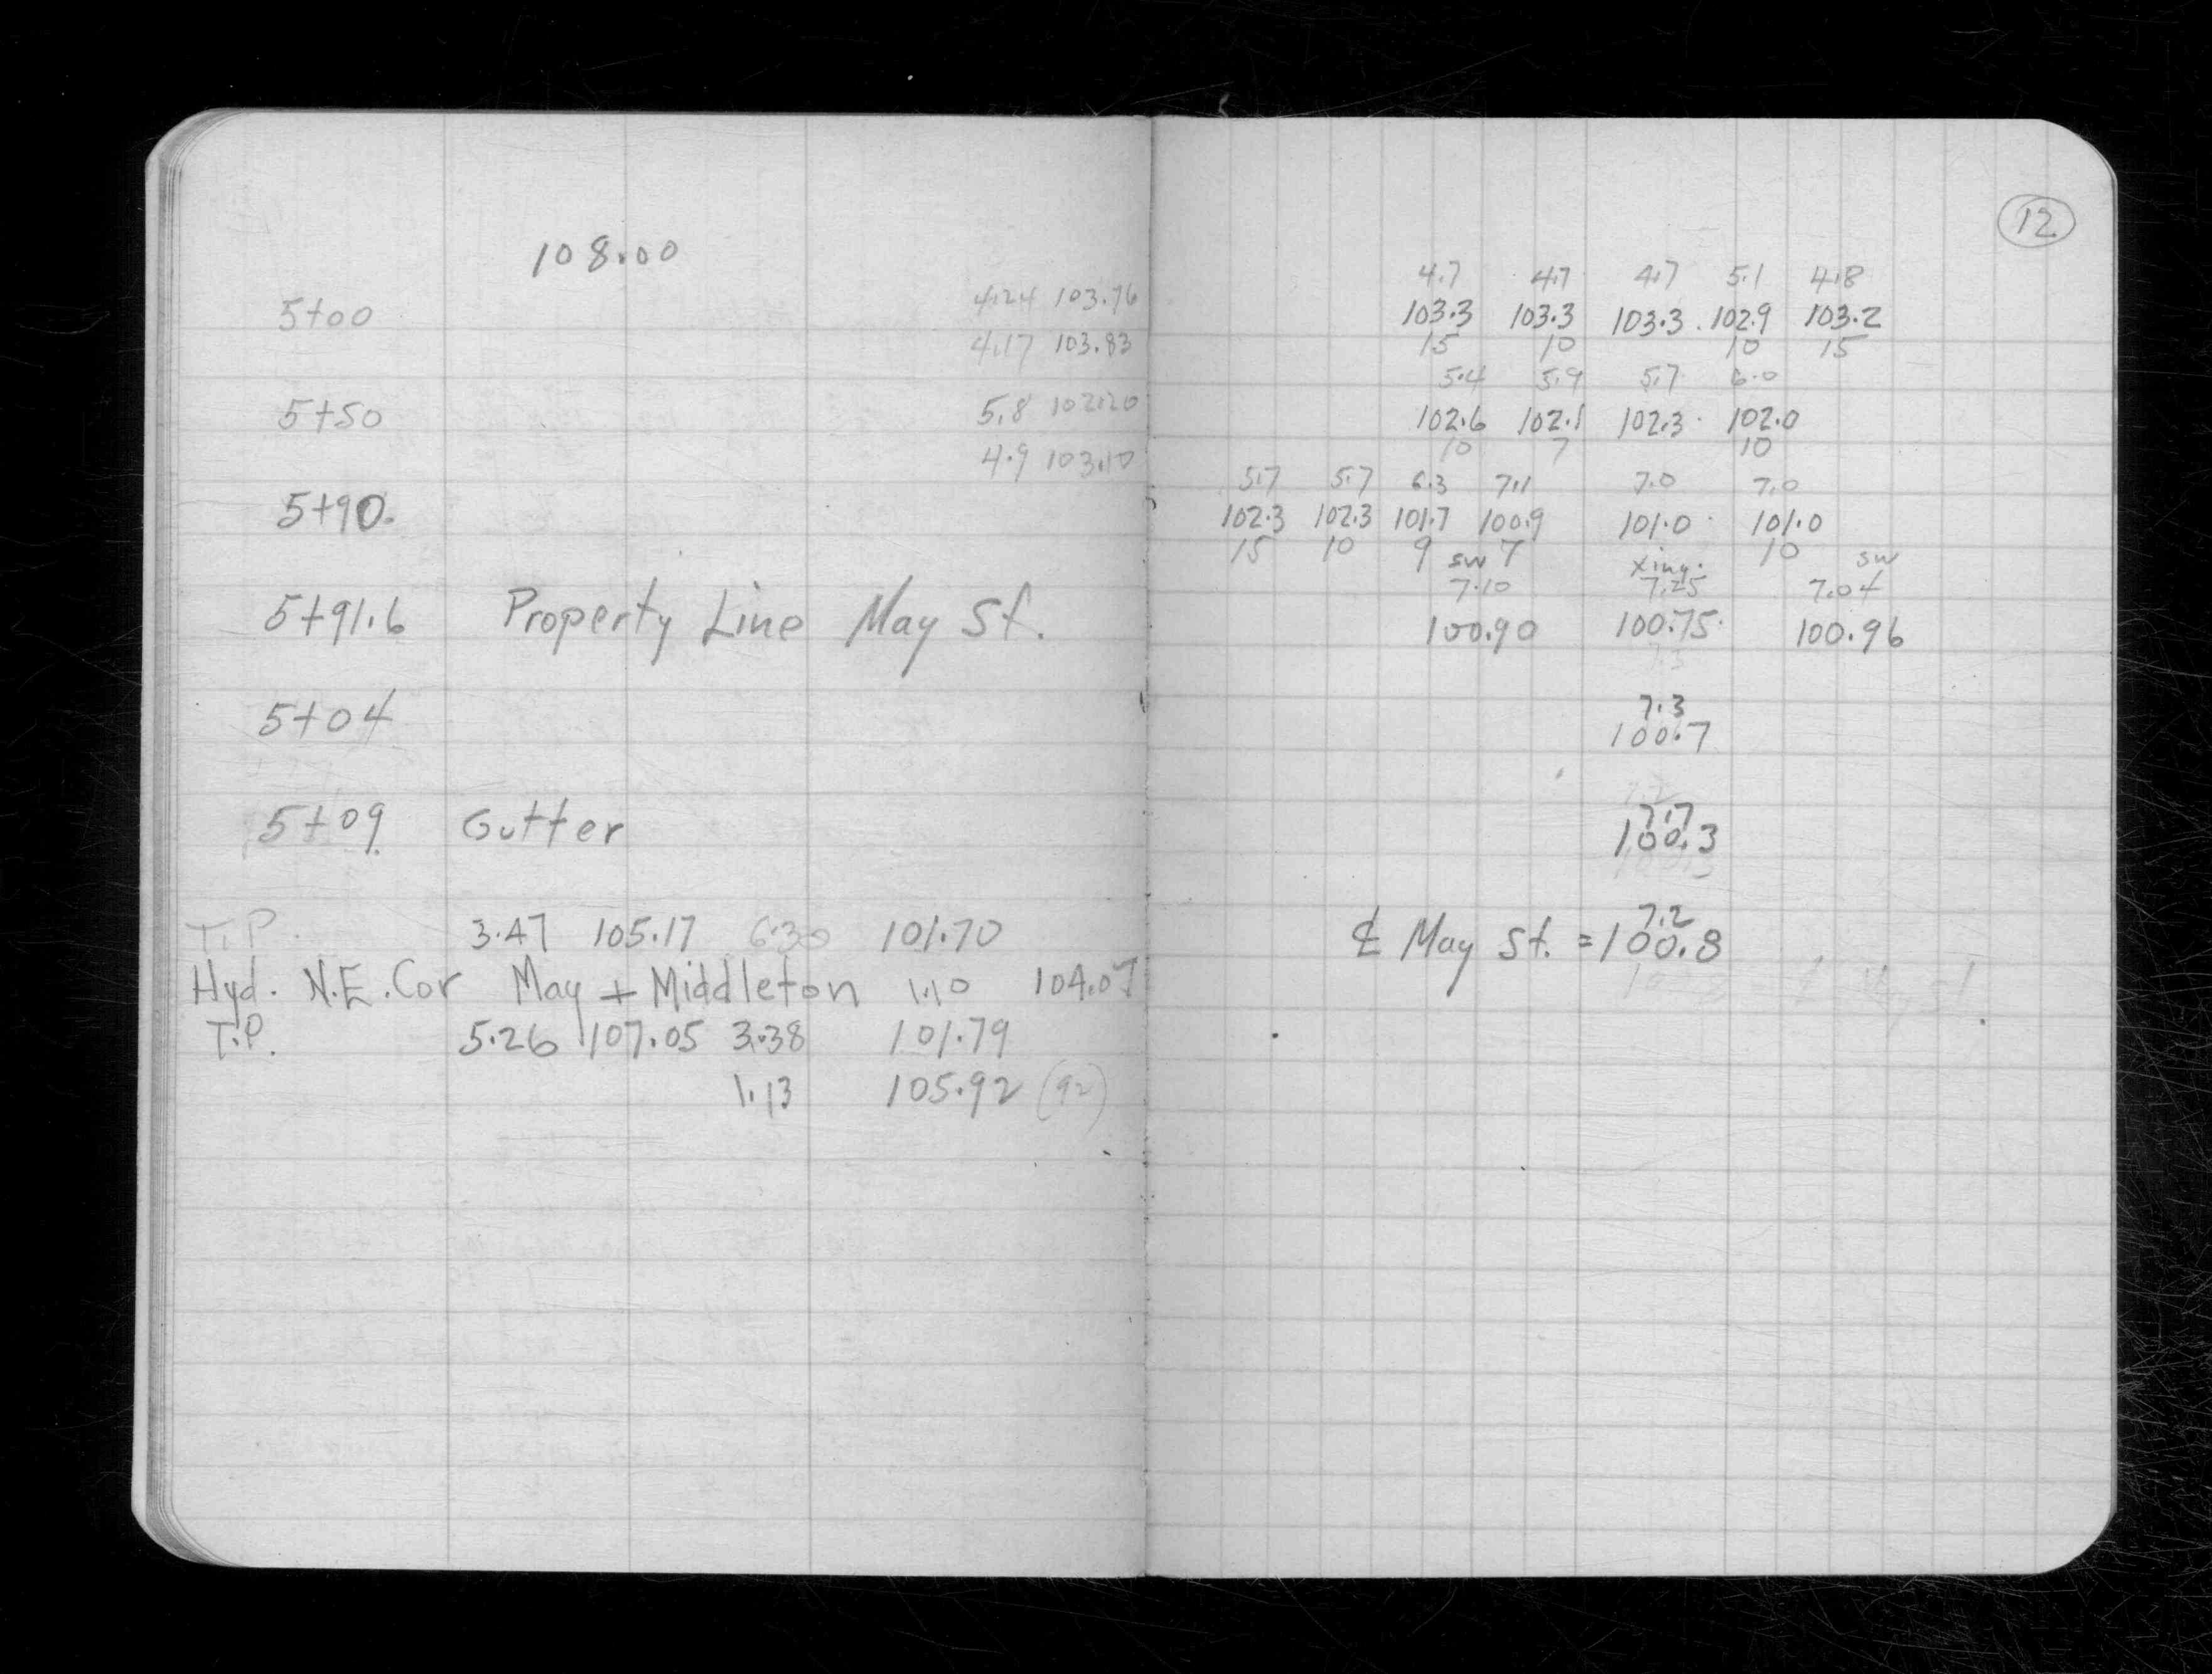 108.00
4.24 103.76
5+00
4.17 103.83
5+50 5.8 102.20
4.9 103.10
5+90.
5+91.6 Property Line May St.
5+04
5+09 Gutter
T.P. 3.47 105.17 6.30 101.70
Hyd. N.E. Cor May + Middleton 1.10 104.07
T.P. 5.26 107.05 3.38 101.79
1.13 105.92 (92)
12
4.7 4.7 4.7 5.1 4.8
103.3 103.3 103.3 102.9 103.2
15 10 10 15
5.4 5.9 5.7 6.0
102.6 102.1 102.3 102.0
10 7 10
5.7 5.7 6.3 7.1 7.0 7.0
102.3 102.3 101.7 100.9 101.0 101.0
15 10 9 7 10
sw xing. sw
7.10 7.25 7.04
100.90 100.75 100.96
7.3
100.7
7.7
100.3
7.2
℄ May St. = 100.8